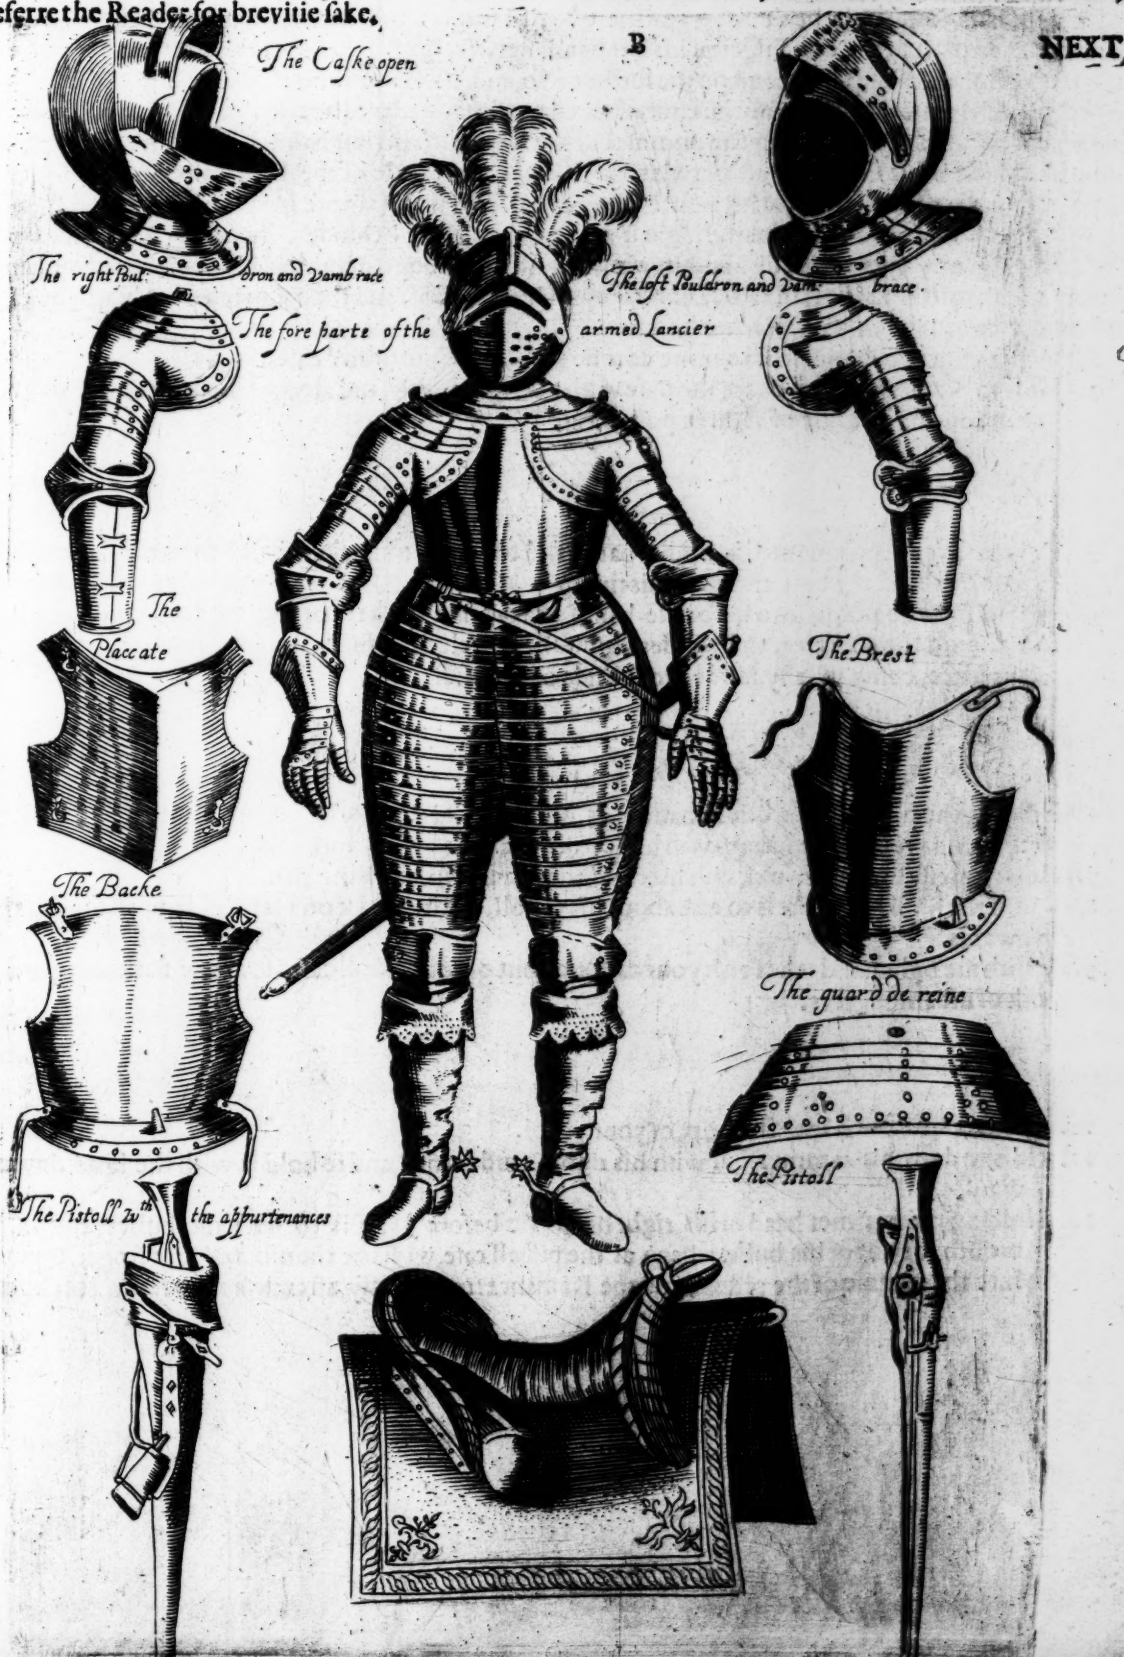 eferre the Reader for brevitie ſake.
B
NEXT,
The Caſke open
The right Poul: dron and Vambrace
The left Pouldron and Vam: brace.
The fore parte of the armed Lancier
The Placcate
The Brest
The Backe
The guard de reine
The Pistoll
The Pistoll wth the appurtenances